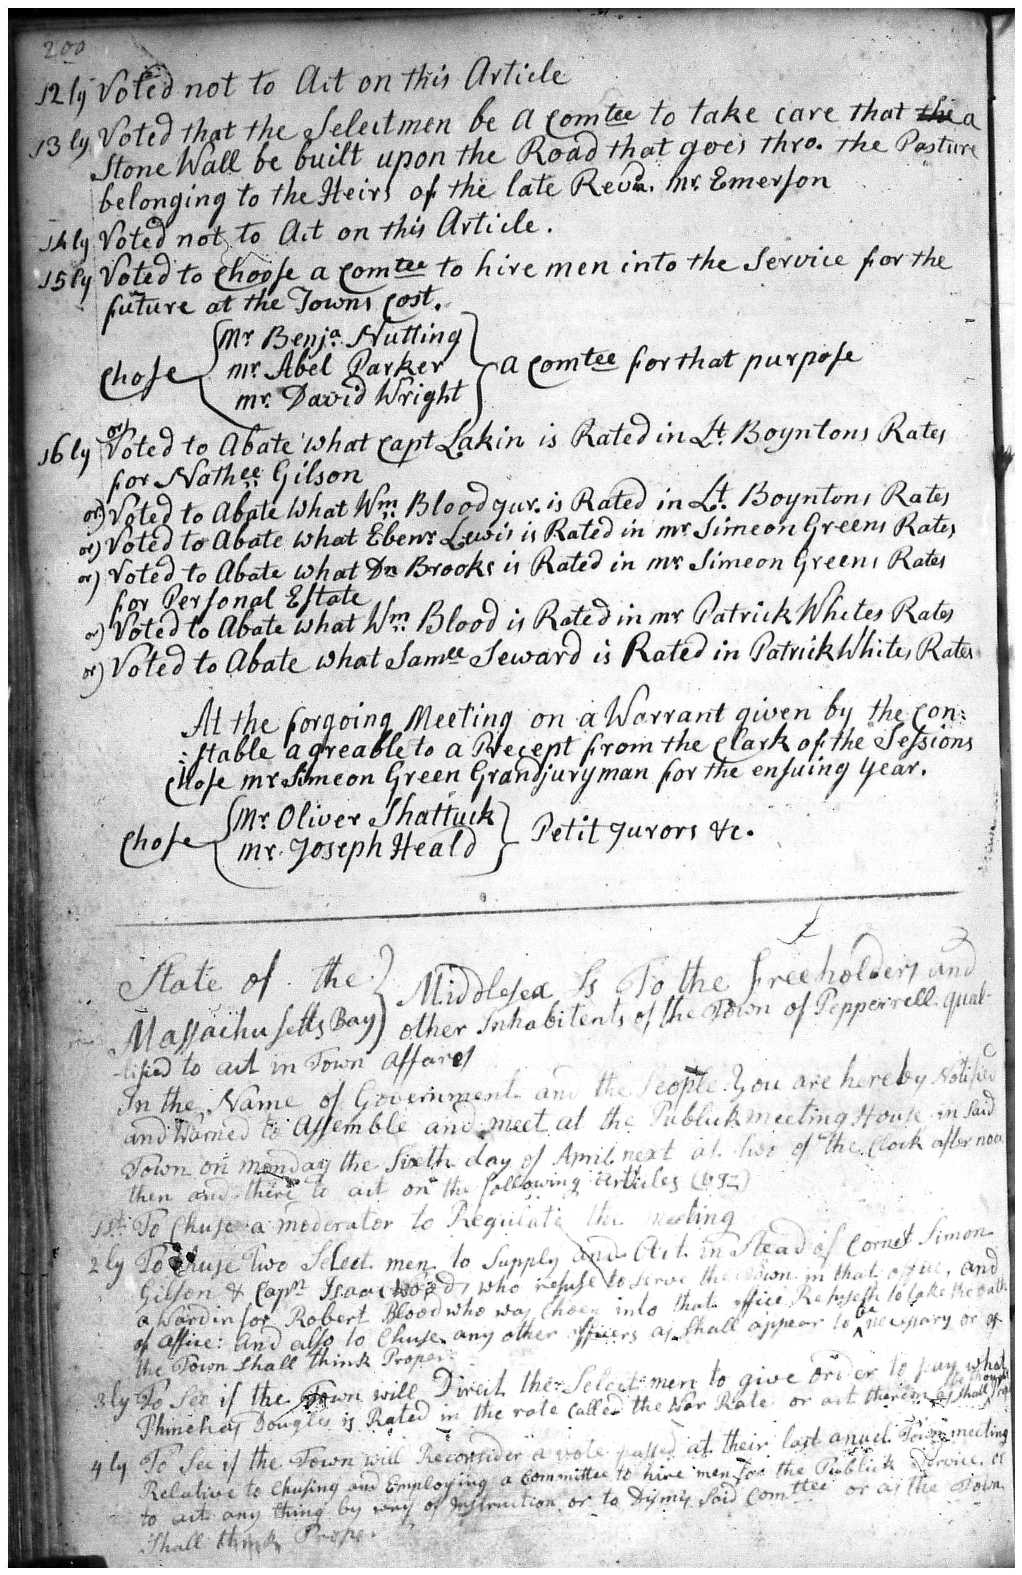 200
12ly Voted not to Act on this Article
13ly Voted that the Selectmen be a Comtee to take care that the a
Stone Wall be built upon the Road that goes thro. the Pasture
belonging to the Heirs of the late Revd. Mr. Emerson
14ly Voted not to Act on this Article.
15ly Voted to Choose a Comtee to hire men into the Service for the
future at the Towns Cost.
Mr Benja. Nutting
Chose mr. Abel Parker A Comtee for that purpose
mr. David Wright
16ly or) Voted to Abate what Capt Lakin is Rated in Lt. Boyntons Rates
for Nathee Gilson
or) Voted to Abate what Wm. Blood Jur. is Rated in Lt. Boyntons Rates
or) Voted to Abate what Ebenr Lewis is Rated in mr. Simeon Greens Rates
or) Voted to Abate what Dn Brooks is Rated in mr Simeon Greens Rates
for Personal Estate
or) Voted to Abate what Wm. Blood is Rated in mr Patrick Whites Rates
or) Voted to Abate what Samee Seward is Rated in Patrick Whites Rates
At the forgoing Meeting on a Warrant given by the Con:
:stable agreable to a Precept from the Clark of the Sessions
Chose mr Simeon Green Grandjuryman for the ensuing Year.
Mr. Oliver Shattuck
Chose Petit Jurors &c.
mr. Joseph Heald
State of the Middlesex Ss To the freeholders and
Massachusetts Bay other Inhabitents of the Town of Pepperrell qual-
-ified to act in Town affares
In the Name of Government and the People You are hereby Notified
and Warned to Assemble and meet at the Publick meeting House in Said
Town on monday the Sixth day of April next at two of the Clock after noon
then and there to act on the following articles (viz)
1st. To Chuse a moderator to Regulate the meeting
2ly To Chuse Two Select men to Supply and Act in Stead of Cornet Simon
Gilson & Capn Isaac Wood, who refuse to serve the Town in that office, and
a Wardin for Robert Blood who was Chosen into that office Refuseth to take the oath
of office: and also to Chuse any other officers as Shall appear to be necessary or as
the Town Shall think Proper.
3ly To See if the Town will Direct the Select men to give order to pay what
Phinehas Douglas is Rated in the rate Called the War Rate or act therein as shall be thought
4ly To See if the Town will Reconsider a vote passed at their last anuel Town meeting
Relative to Chusing and Employing a Committee to hire men for the Publick Service, or
to act any thing by way of Instruction or to Dismis Said Comttee or as the Town
Shall think Proper